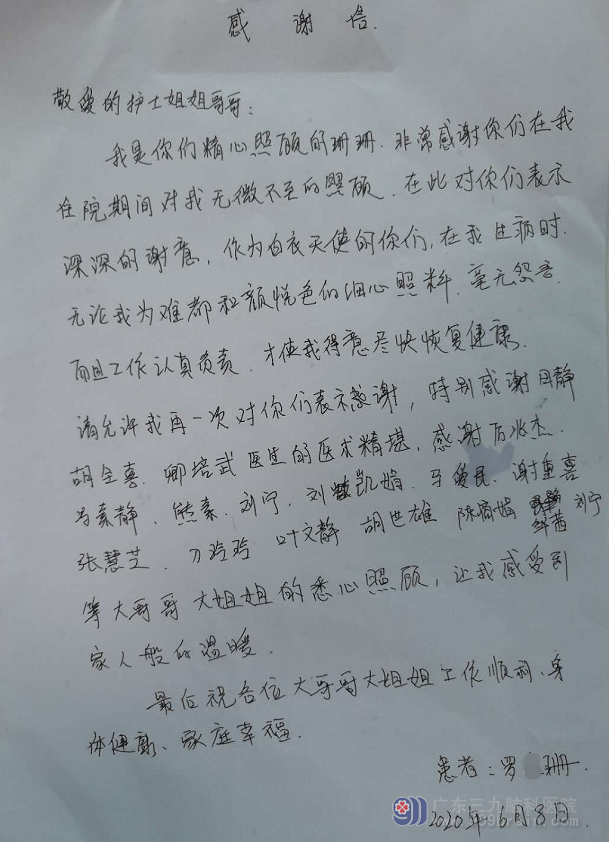 感谢信.
敬爱的护士姐姐哥哥:
我是你们精心照顾的珊珊.非常感谢你们在我
住院期间对我无微不至的照顾.在此对你们表示
深深的谢意,作为白衣天使的你们,在我生病时.
无论我为难都和颜悦色的细心照料.毫无怨言.
而且工作认真负责.才使我得意尽快恢复健康.
请允许我再一次对你们表示感谢,特别感谢吕静
胡全喜.卿培武医生的医术精堪.感谢 兆杰.
马素静.熊素.刘宁.刘 凯娟.马爱民.谢重喜
张慧芝.刁玲玲 叶文静 胡世雄 陈 娟 邹茜 刘宁
等大哥哥大姐姐的悉心照顾,让我感受到
家人般的温暖.
最后祝各位大哥哥大姐姐工作顺利、身
体健康、家庭幸福.
患者:罗 珊.
2020年6月8日.
广东三九脑科医院